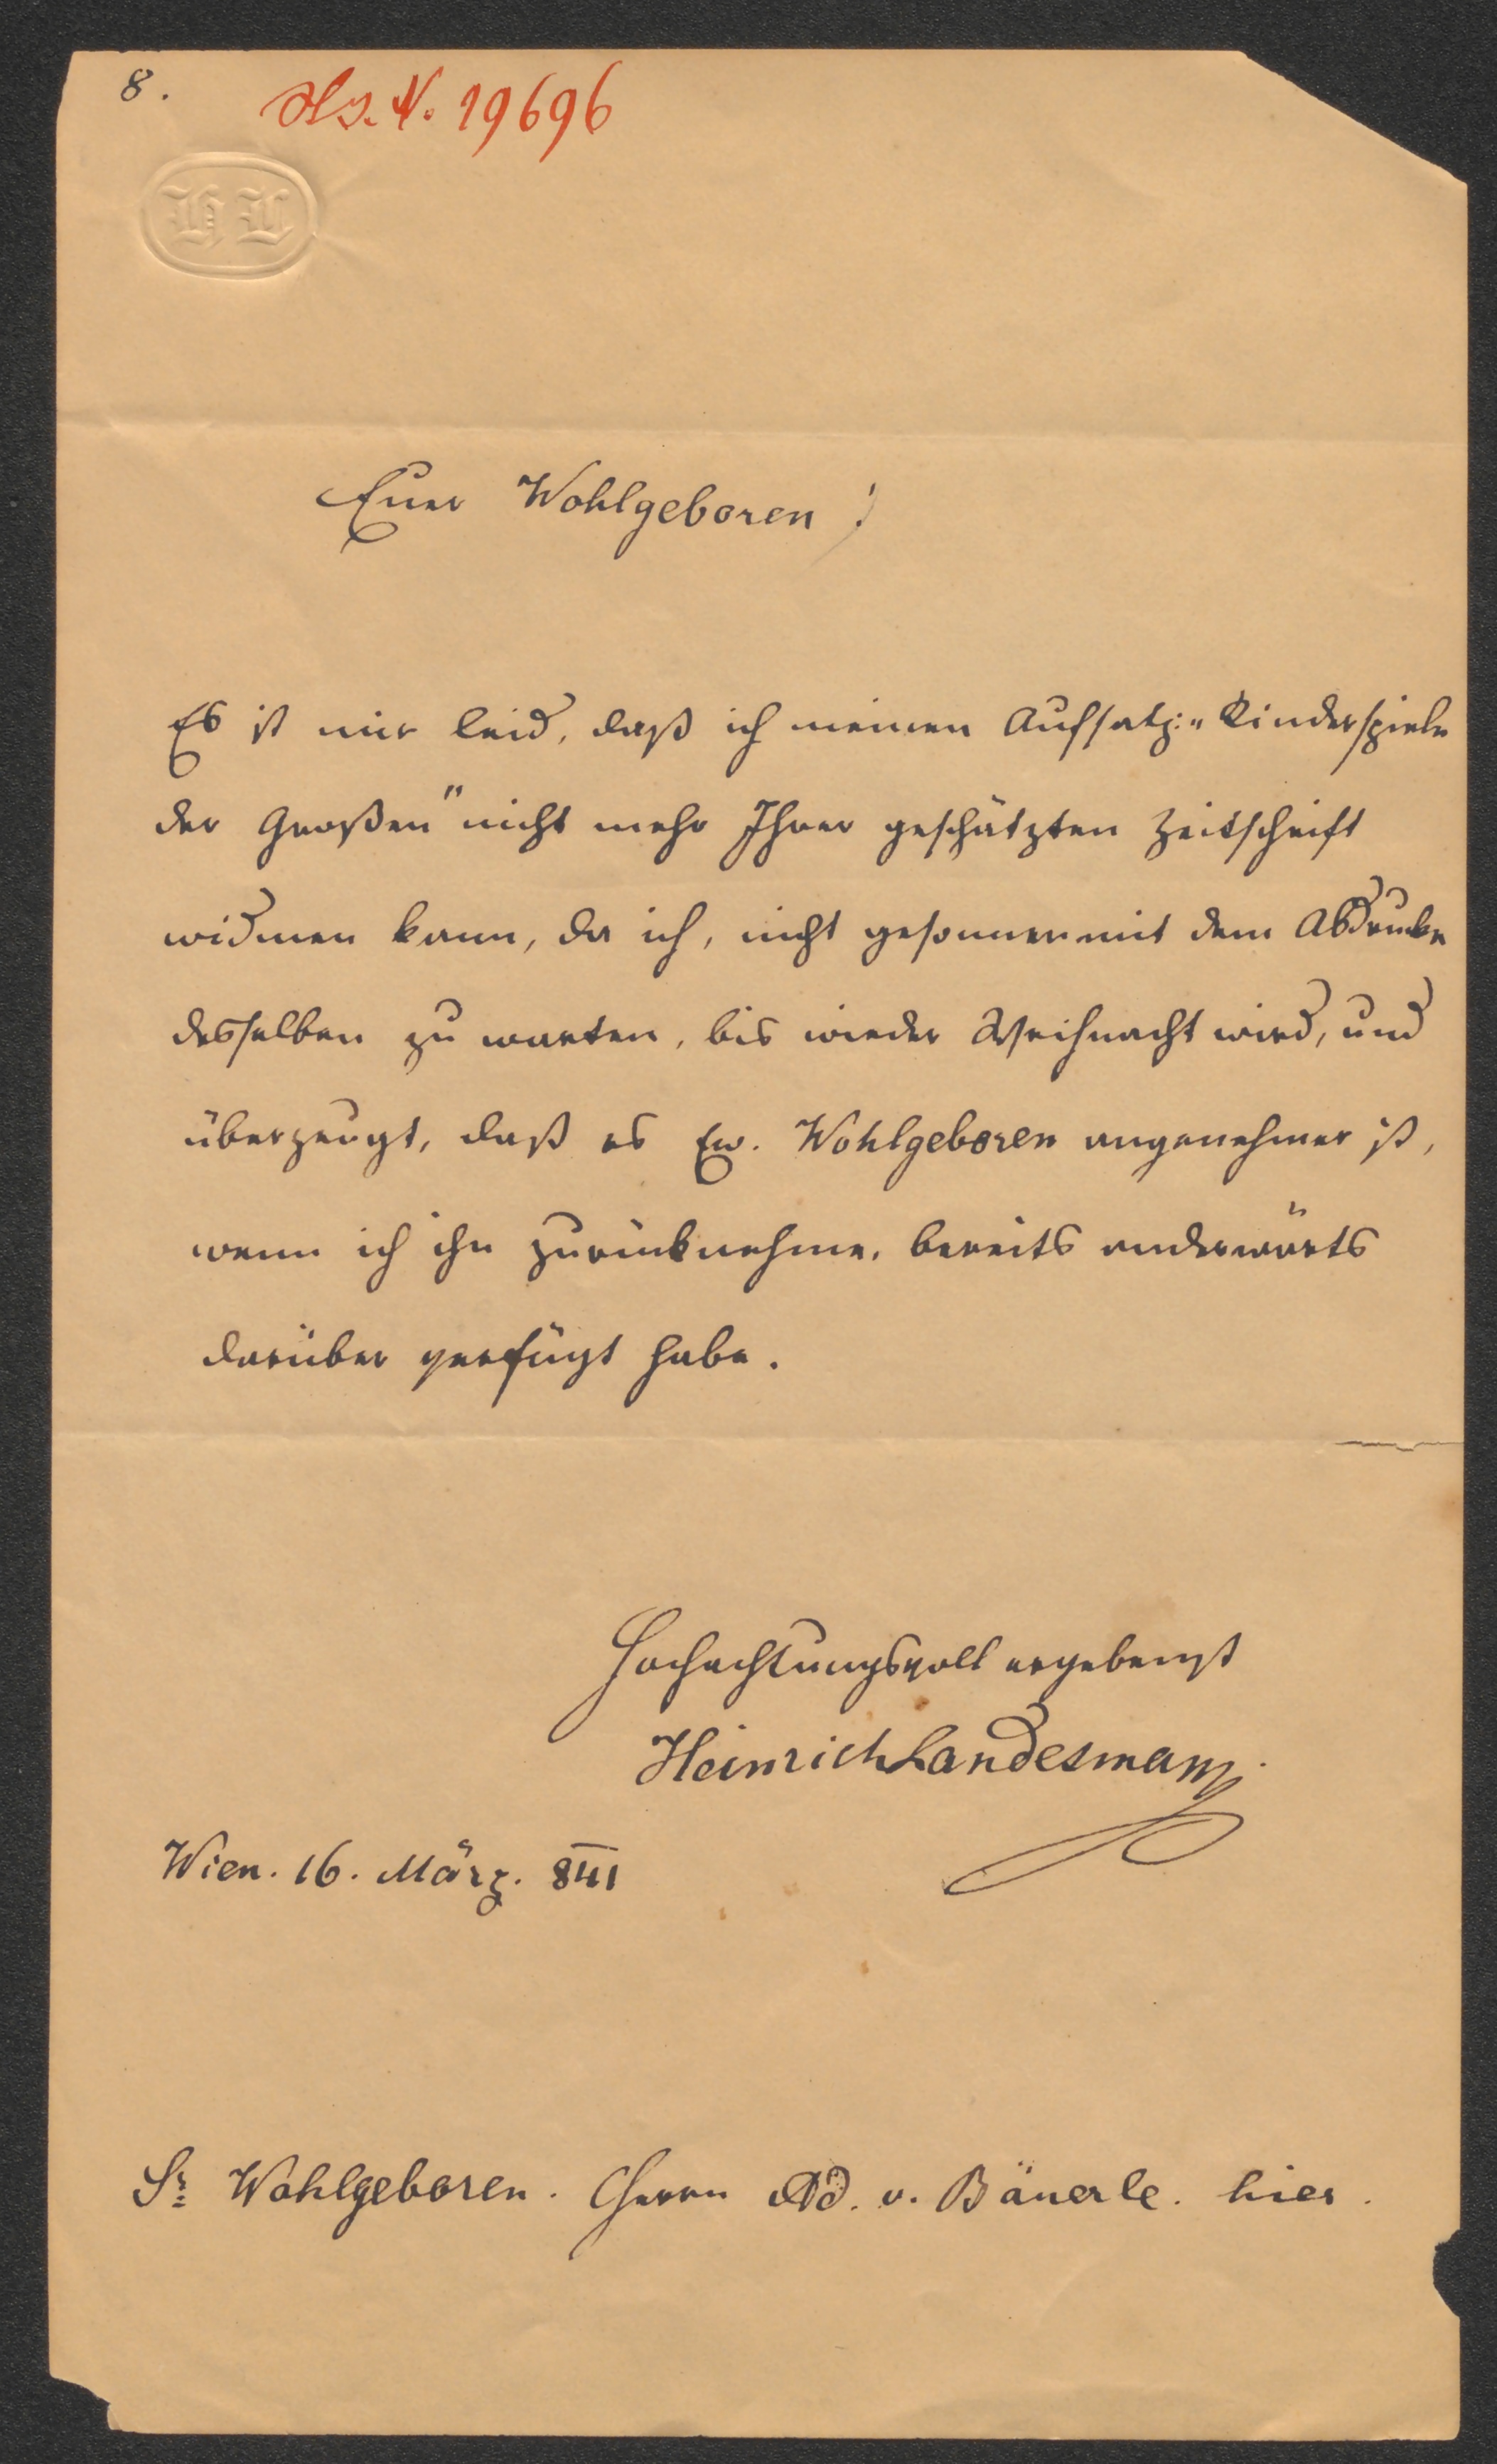 8.
Hs. N. 19696
HL
Euer Wohlgeboren!
Es ist mir leid, daß ich meinen Aufsatz: „Kinderspiele
der Großen" nicht mehr Ihrer geschätzten Zeitschrift
widmen kann, da ich, nicht gesonnen mit dem Abdrucke
desselben zu warten, bis wieder Weihnacht wird, und
überzeugt, daß es Ew. Wohlgeboren angenehmer ist,
wenn ich ihn zurücknehme, bereits anderwärts
darüber verfügt habe.
Hochachtungsvoll ergebenst
Heinrich Landesmann
Wien. 16. März. 841
Sr Wohlgeboren. Herrn Ad. v. Bäuerle. hier.